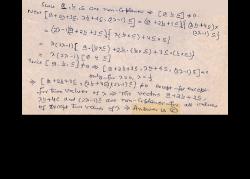 Since a, b, c are non-coplanar ⇒ [a b c] ≠ 0.
Now [a+2b+3c, λb+4c, (2λ-1)c] = (a+2b+3c)·{(λb+4c)×
(2λ-1)c}
= (2λ-1)(a+2b+3c)·{λ(b×c)
= λ(2λ-1){a·(b×c)+2b·(b×c)+3c·(b×c)}
= λ(2λ-1)[a b c]
Since [a b c] ≠ 0 ⇒ [a+2b+3c, λb+4c, (2λ-1)c] = 0
only for λ=0, λ=½
⇒ [a+2b+3c, λb+4c, (2λ-1)c] ≠ 0 except for
for two values of λ ⇒ The vectors a+2b+3c,
λb+4c and (2λ-1)c are non-coplanar for all values
of except two values of λ ⇒ Answer is